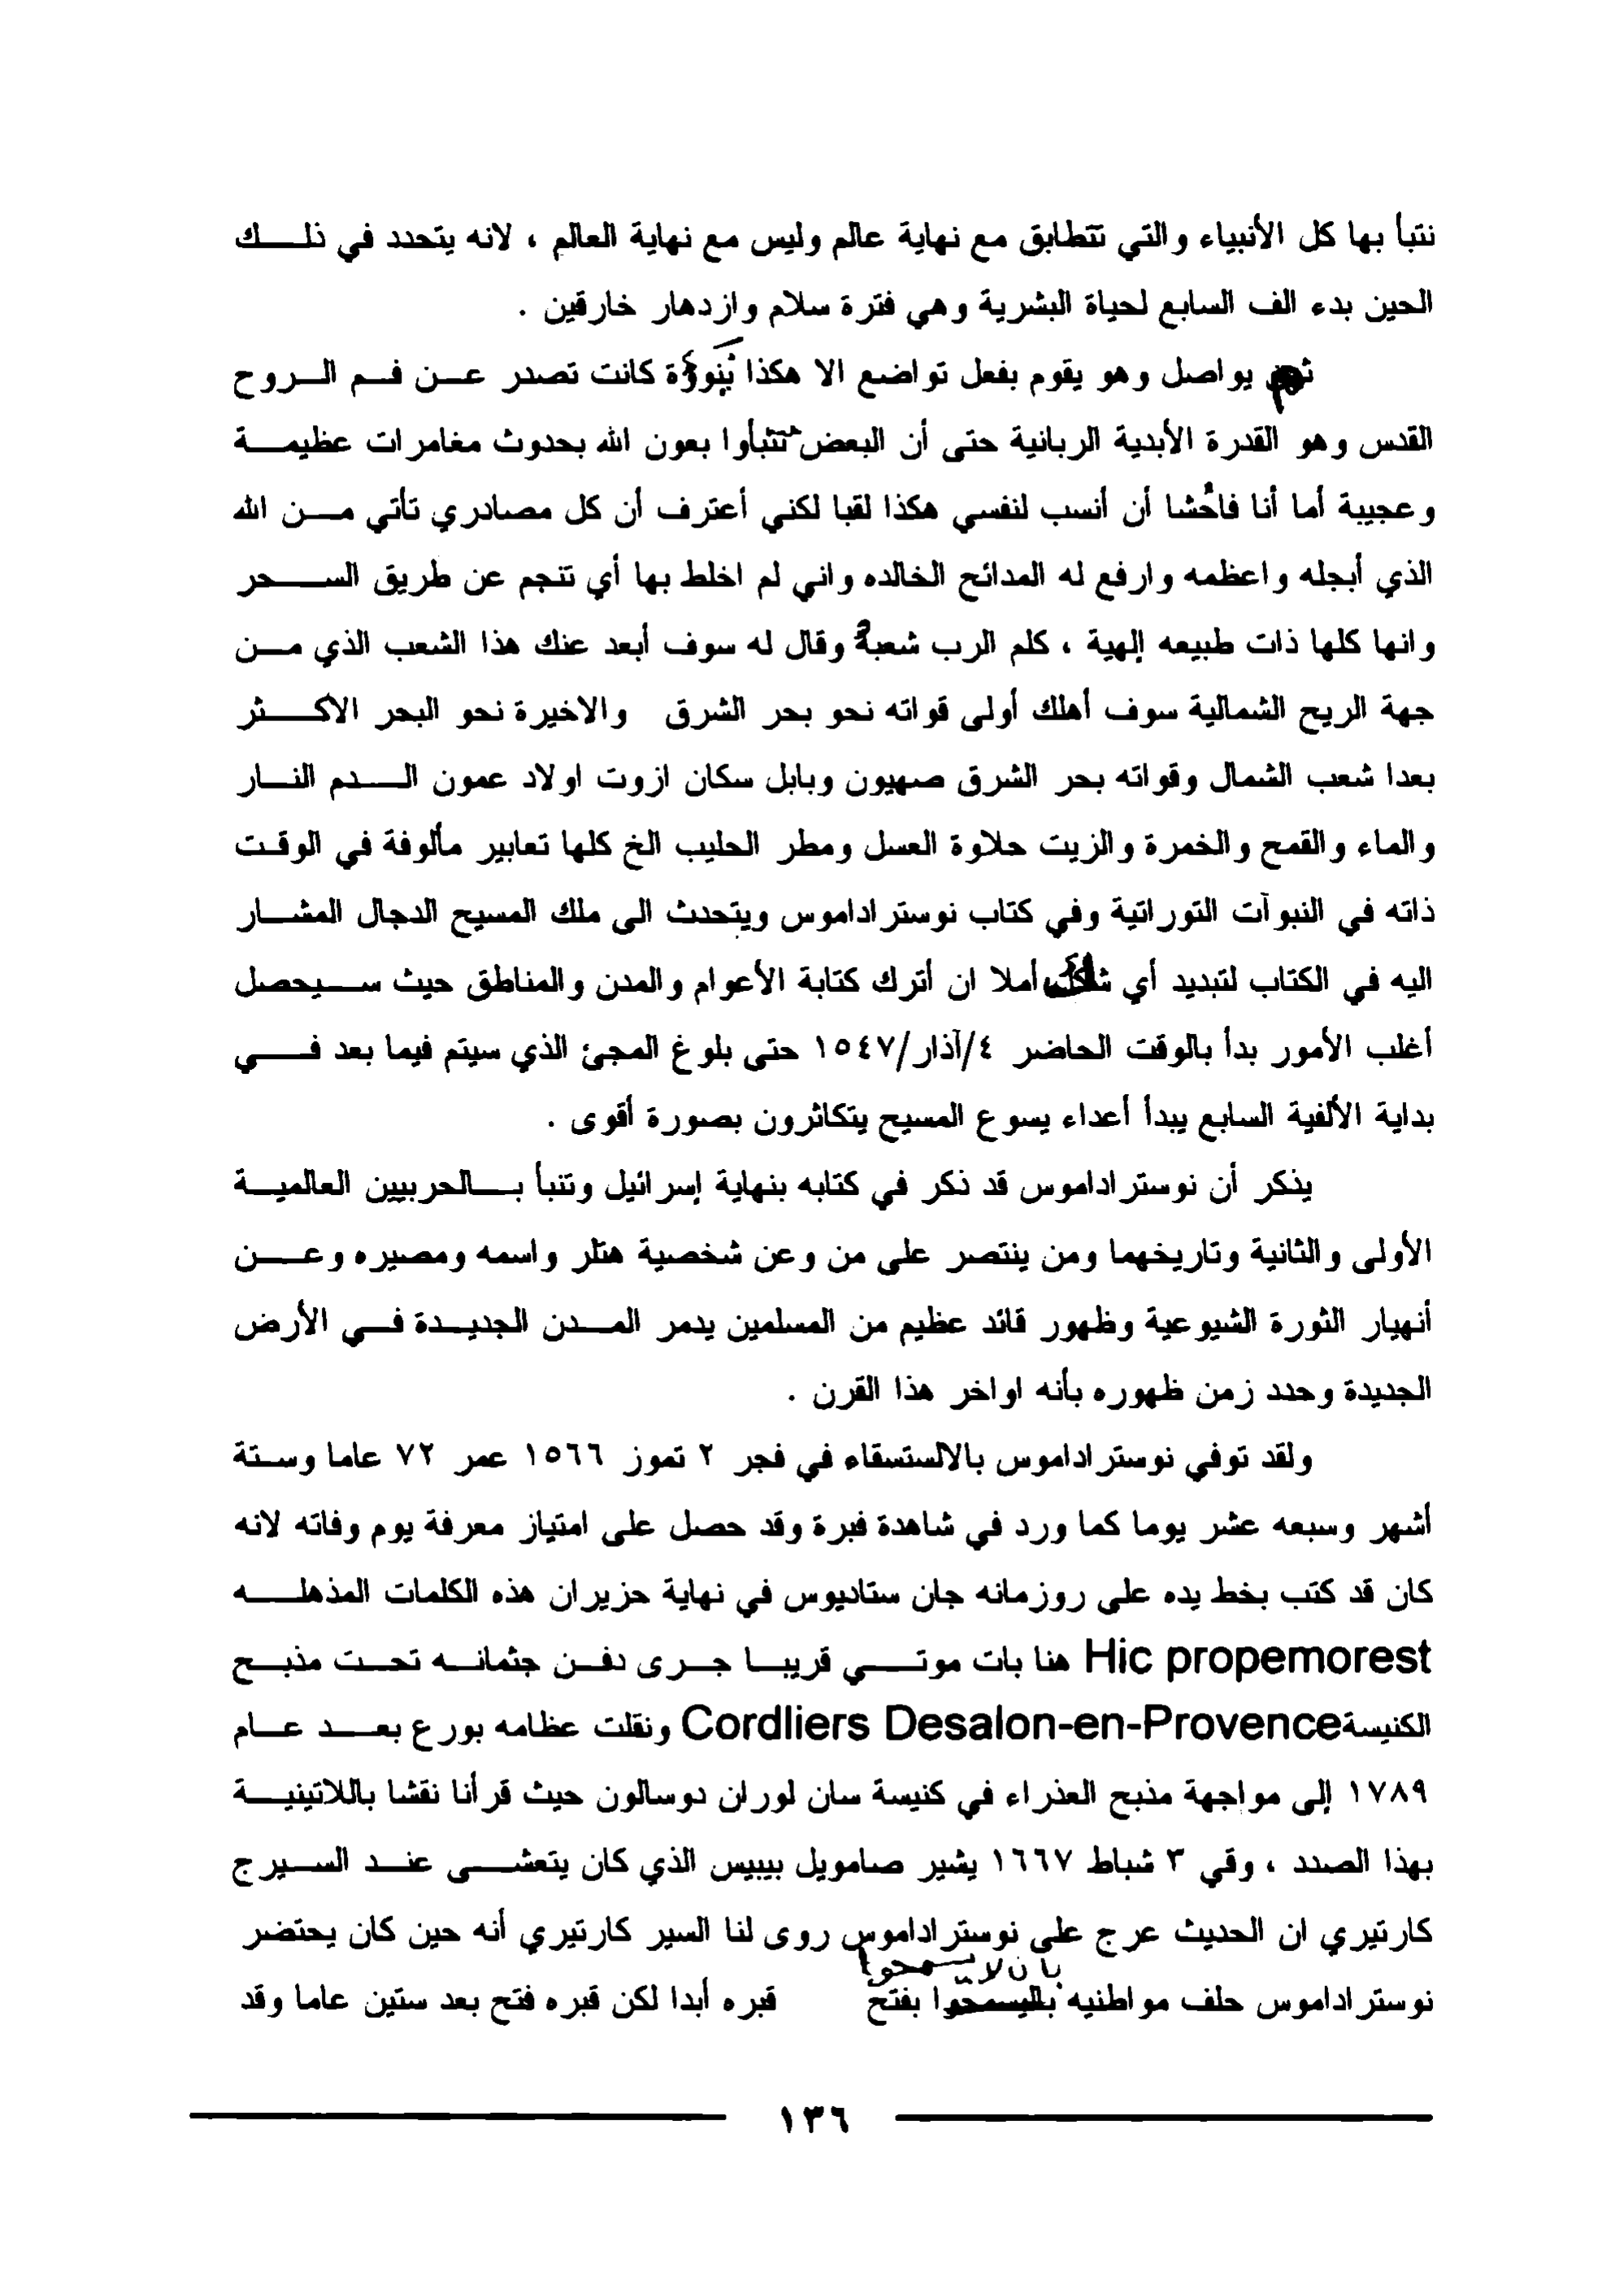 نتبأ بها كل الأنبياء والتي تتطابق مع نهاية عالم وليس مع نهاية العالم ، لانه يتحدد في ذلك
الحين بدء الف السابع لحياة البشرية وهي فترة سلام وازدهار خارقين .
ثم يواصل وهو يقوم بفعل تواضع الا هكذا نبوؤة كانت تصدر عن فم الروح
القدس وهو القدرة الأبدية الربانية حتى أن البعض تنبأوا بعون الله بحدوث مغامرات عظيمة
وعجيبة أما أنا فاخشا أن أنسب لنفسي هكذا لقبا لكني أعترف أن كل مصادري تأتي من الله
الذي أبجله واعظمه وارفع له المدائح الخالده واني لم اخلط بها أي تنجم عن طريق السحر
وانها كلها ذات طبيعه إلهية ، كلم الرب شعبة وقال له سوف أبعد عنك هذا الشعب الذي من
جهة الريح الشمالية سوف أهلك أولى قواته نحو بحر الشرق والاخيرة نحو البحر الاكثر
بعدا شعب الشمال وقواته بحر الشرق صهيون وبابل سكان ازوت اولاد عمون الدم النار
والماء والقمح والخمرة والزيت حلاوة العسل ومطر الحليب الخ كلها تعابير مألوفة في الوقت
ذاته في النبوآت التوراتية وفي كتاب نوستراداموس ويتحدث الى ملك المسيح الدجال المشار
اليه في الكتاب لتبديد أي أملا ان أترك كتابة الأعوام والمدن والمناطق حيث سيحصل
أغلب الأمور بدأ بالوقت الحاضر ٤/آذار/١٥٤٧ حتى بلوغ المجئ الذي سيتم فيما بعد في
بداية الألفية السابع يبدأ أعداء يسوع المسيح يتكاثرون بصورة أقوى .
يذكر أن نوستراداموس قد ذكر في كتابه بنهاية إسرائيل وتنبأ بالحربيين العالمية
الأولى والثانية وتاريخهما ومن ينتصر على من وعن شخصية هتلر واسمه ومصيره وعن
أنهيار الثورة الشيوعية وظهور قائد عظيم من المسلمين يدمر المدن الجديدة في الأرض
الجديدة وحدد زمن ظهوره بأنه اواخر هذا القرن .
ولقد توفي نوستراداموس بالالستسقاء في فجر ٢ تموز ١٥٦٦ عمر ٧٢ عاما وستة
أشهر وسبعه عشر يوما كما ورد في شاهدة فبرة وقد حصل على امتياز معرفة يوم وفاته لانه
كان قد كتب بخط يده على روزمانه جان ستاديوس في نهاية حزيران هذه الكلمات المذهله
Hic propemorest هنا بات موتي قريبا جرى دفن جثمانه تحت مذبح
الكنيسةCordliers Desalon-en-Provence ونقلت عظامه بورع بعد عام
١٧٨٩ إلى مواجهة مذبح العذراء في كنيسة سان لوران دوسالون حيث قرأنا نقشا باللاتينية
بهذا الصدد ، وقي ٣ شباط ١٦٦٧ يشير صامويل بيبيس الذي كان يتعشى عند السيرج
كارتيري ان الحديث عرج على نوستراداموس روى لنا السير كارتيري أنه حين كان يحتضر
نوستراداموس حلف مواطنيه بان لا يسمحوا بفتح قبره أبدا لكن قبره فتح بعد ستين عاما وقد
١٣٦